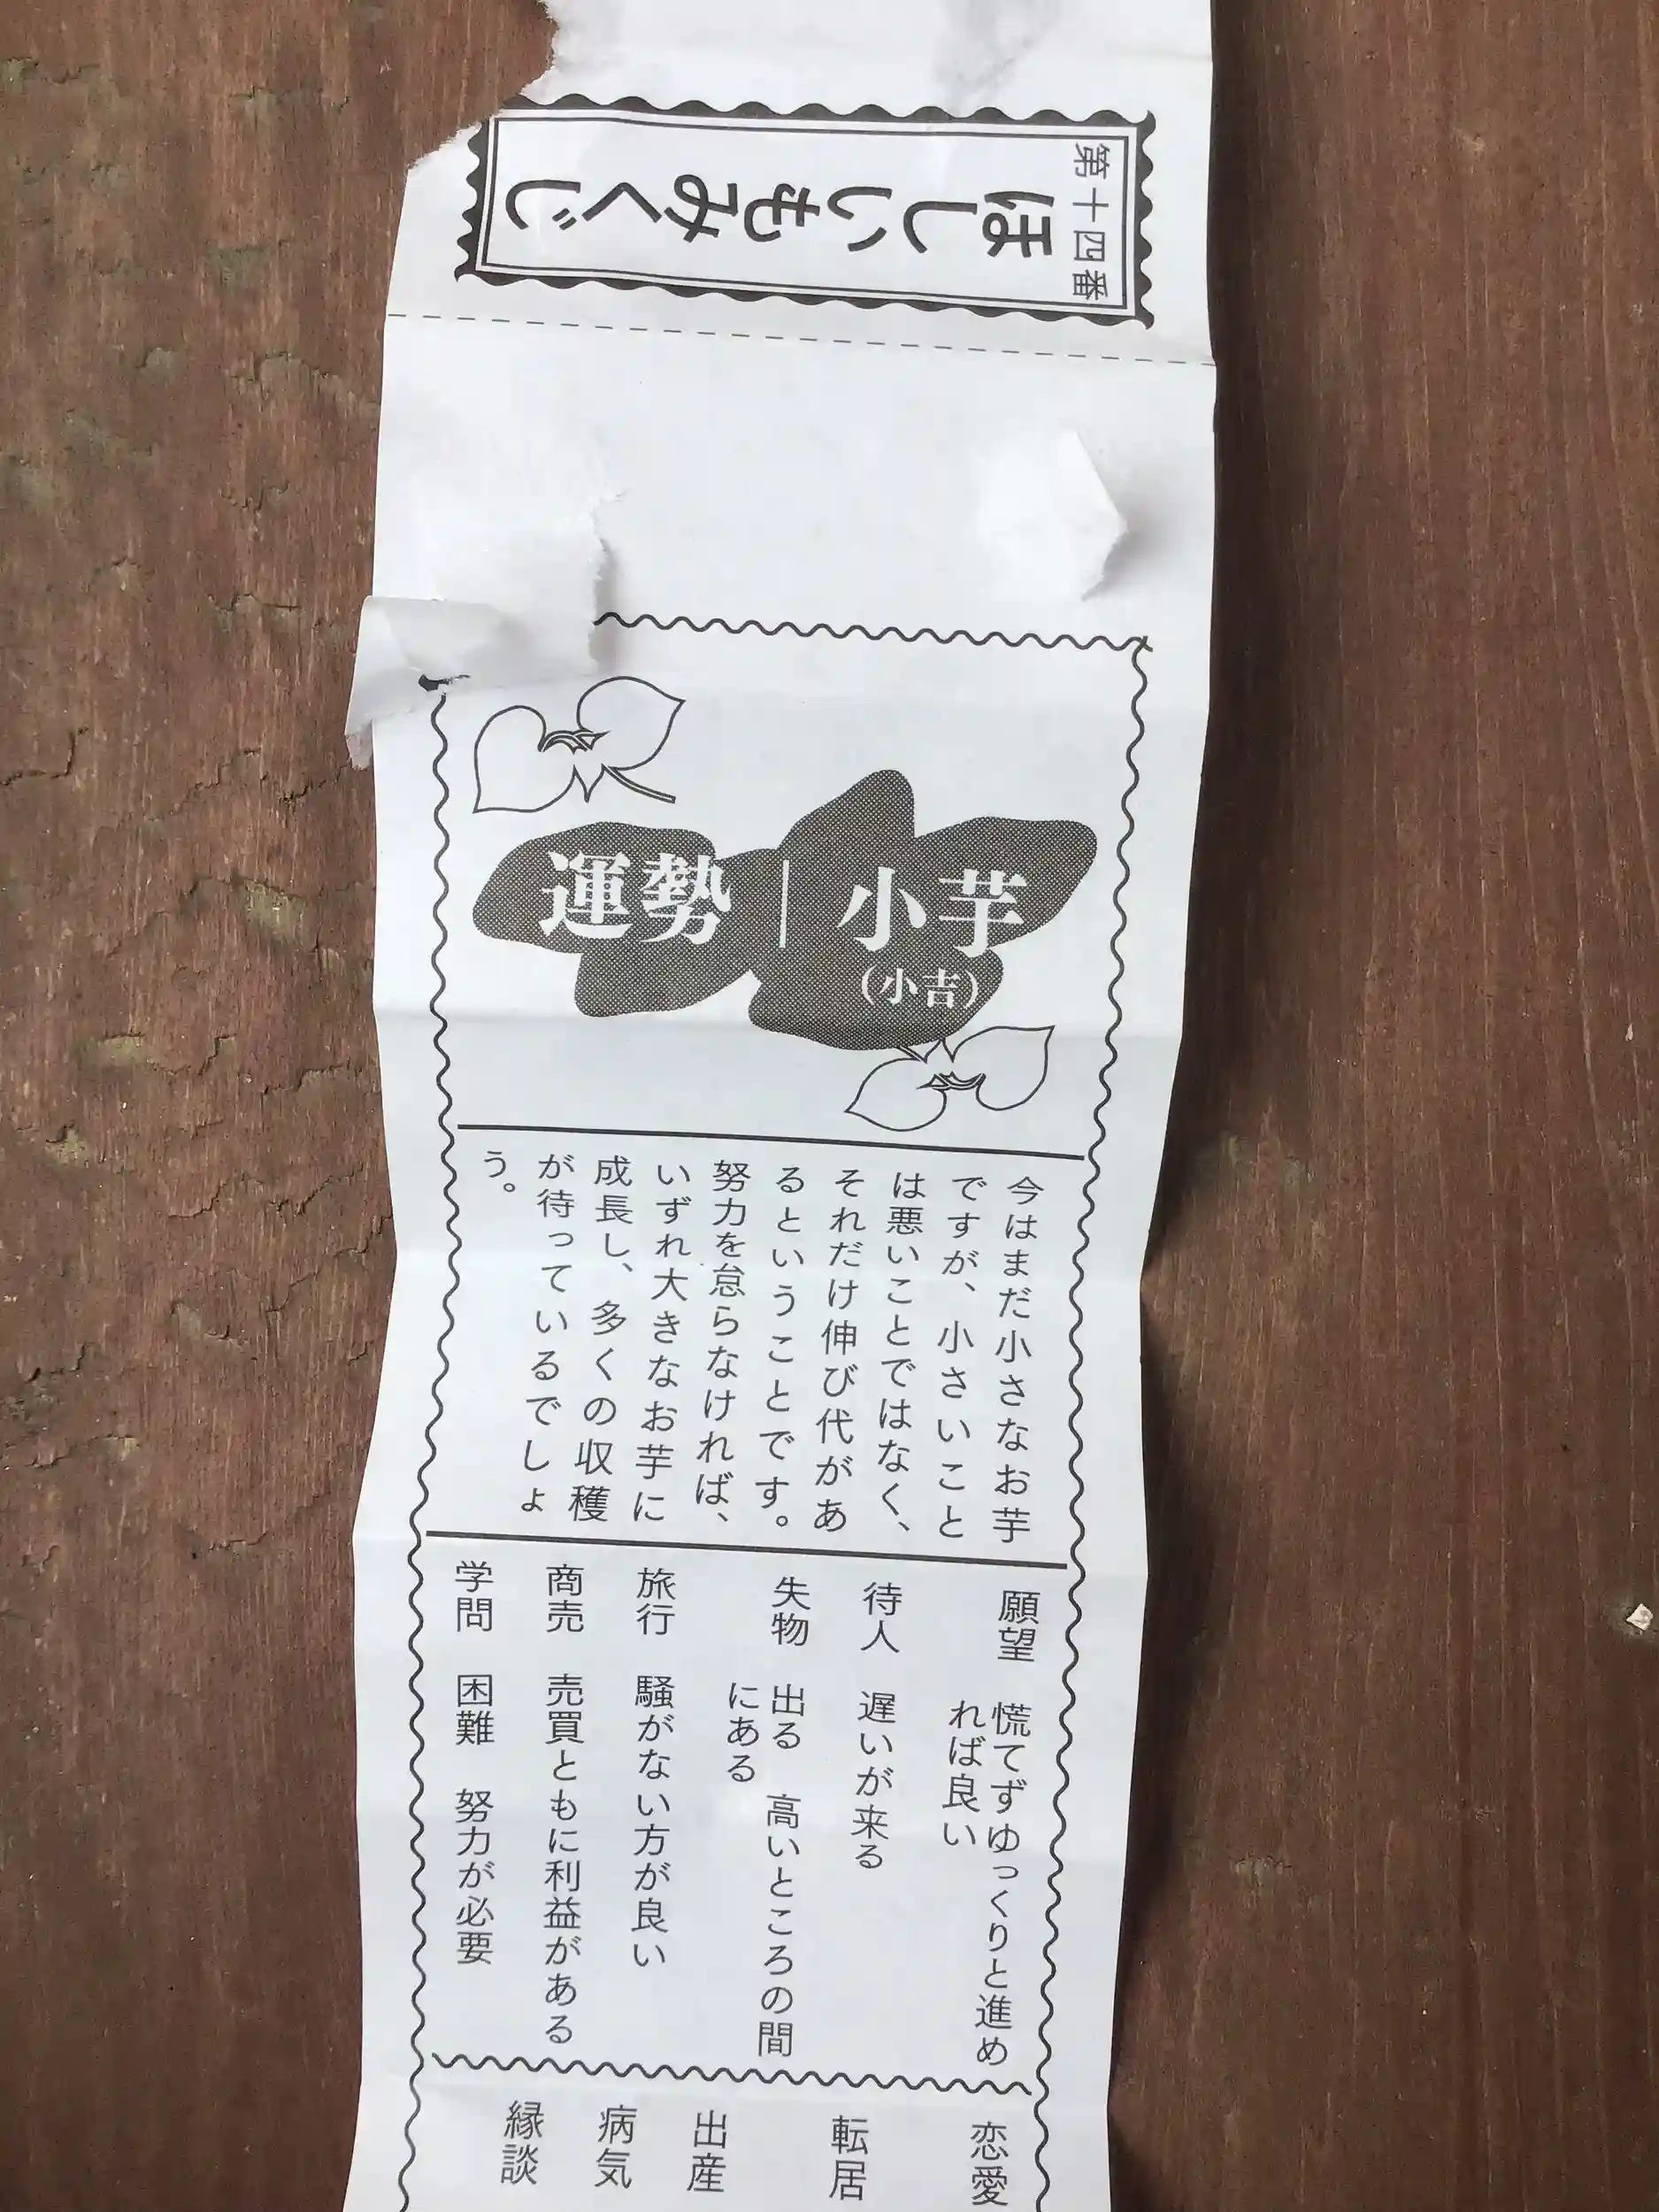 第十四番
ほしいもみくじ
運勢｜小芋
（小吉）
今はまだ小さなお芋
ですが、小さいこと
は悪いことではなく、
それだけ伸び代があ
るということです。
努力を怠らなければ、
いずれ大きなお芋に
成長し、多くの収穫
が待っているでしょ
う。
願望　慌てずゆっくりと進め
れば良い
待人　遅いが来る
失物　出る　高いところの間
にある
旅行　騒がない方が良い
商売　売買ともに利益がある
学問　困難　努力が必要
恋愛
転居
出産
病気
縁談